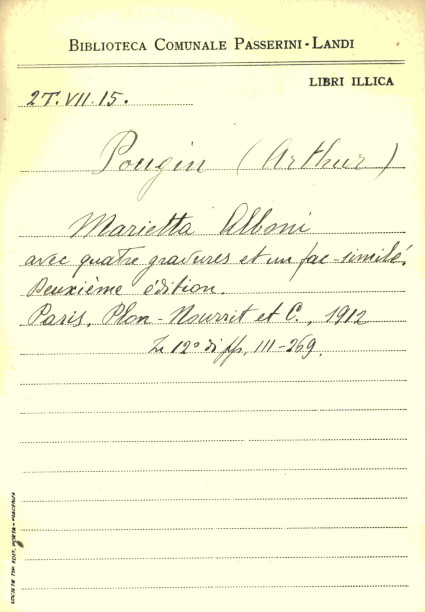 BIBLIOTECA COMUNALE PASSERINI-LANDI
LIBRI ILLICA
2T.VII.15.
Pougin (Arthur)
Marietta Alboni
avec quatre gravures et un fac-similé.
Deuxième édition.
Paris, Plon-Nourrit et C., 1912
In 12° di pp. III-269.
SOCIETÀ TIP. EDIT. PORTA-PIACENZA